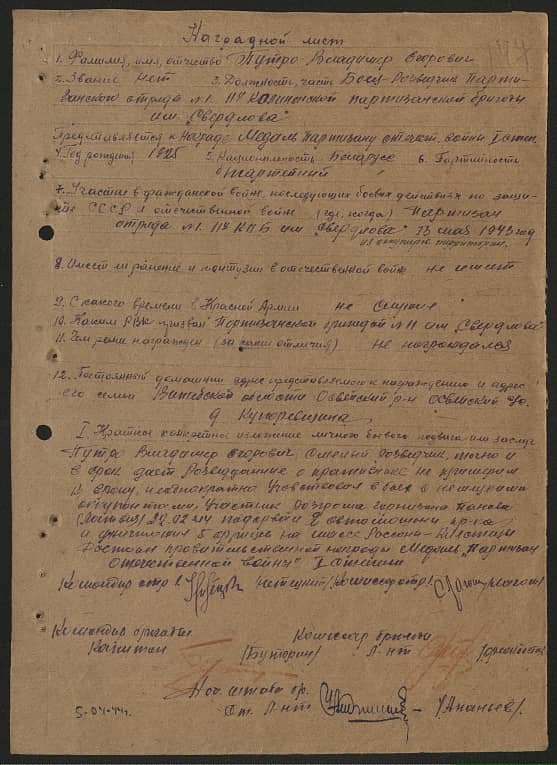 Наградной лист
1. Фамилия, имя, отчество Путро Владимир Егорович
2. Звание нет 3. Должность, часть Боец-Разведчик Парти-
занского отряда №1. 11й Калининской партизанской бригады
им. "Свердлова"
Представляется к Награде Медаль Партизану отечест. войны I степ.
4. Год рождения 1925 5. Национальность Беларусс 6. Партийность
7. Участие в гражданской войне, последующих боевых действиях по защи-
те СССР и отечественной войне (где, когда) Партизан
отряда №1. 11й КПБ им "Свердлова" 13 мая 1943 год
8. Имеет ли ранение и контузии в отечественной войне не имеет
9. С какого времени в Красной Армии не служил
10. Каким РВК призван Партизанской бригадой №11 им "Свердлова"
11. Чем ранее награжден (за какие отличия) не награждался
12. Постоянный домашний адрес представляемого к награждению и адрес
его семьи Витебской области Освейский р-н Освейский
д
I. Краткое конкретное изложение личного боевого подвига или заслуг
Путро Владимир Егорович Смелый разведчик, точно и
в срок дает Разведданные о противнике не
врагу, неоднократно Участвовал в боях с немецкими
оккупантами, Участник Разгрома гарнизона
(Латвия) 22.02.44 подорвал 2 автомашины пр-ка
и уничтожил 5 фрицев на шоссе Россоны-Клястицы
Достоин правительственной награды Медаль "Партизан
Отечественной войны" I степени
Командир отр 1. Комиссар отр 1
Командир бригады Комиссар бригады
Капитан /Бутарин/ Л-нт
Нач штаба бр.
Ст. Л-нт /Ананьев/.
5-04-44г.